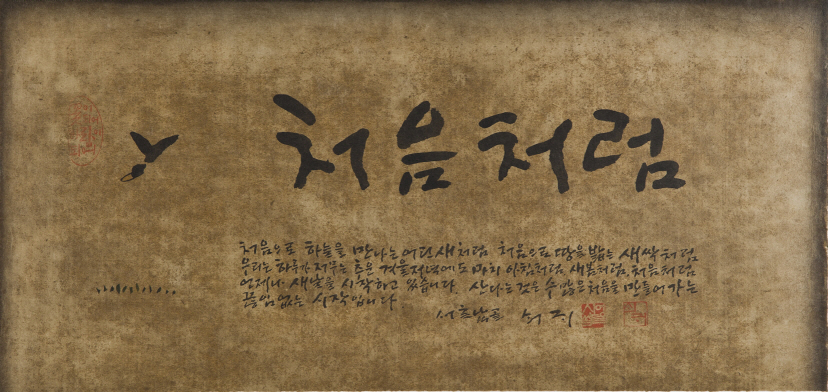 처음처럼
처음으로 하늘을 만나는 어린 새처럼 처음으로 땅을 밟는 새싹처럼
우리는 하루가 저무는 추운 겨울 저녁에도 마치 아침처럼, 새봄처럼, 처음처럼
언제나 새날을 시작하고 있습니다. 산다는 것은 수많은 처음을 만들어 가는
끊임없는 시작입니다